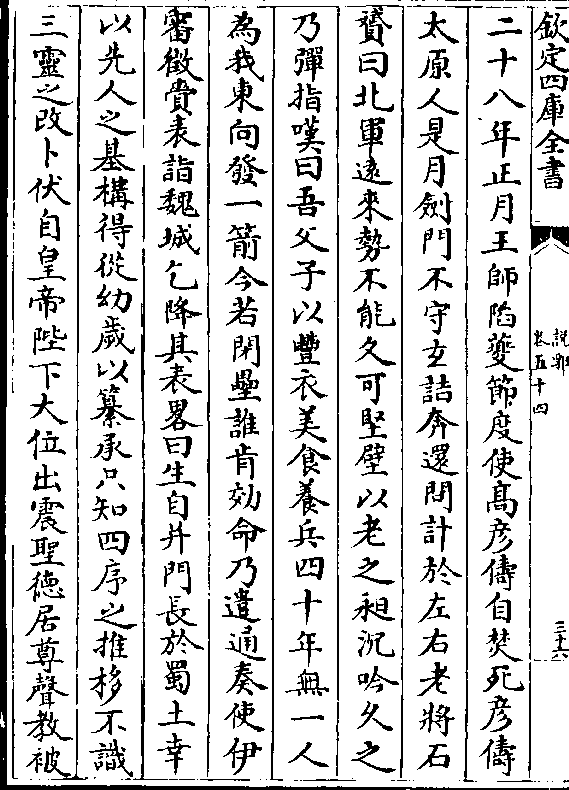 欽定四庫全書
說郛
卷五十四
三十六
二十八年正月王師陷夔節度使髙彦儔自焚死彦儔
太原人是月劍門不守玄喆奔還問計於左右老將石
贇曰北軍逺來勢不能久可堅壁以老之昶沉吟久之
乃彈指嘆曰吾父子以豐衣美食養兵四十年無一人
為我東向發一箭今若閉壘誰肯効命乃遣通奏使伊
審徴賫表詣魏城乞降其表畧曰生自并門長於蜀土幸
以先人之基構得從幼歲以纂承只知四序之推移不識
三靈之改卜伏自皇帝陛下大位出震聖徳居尊聲教被